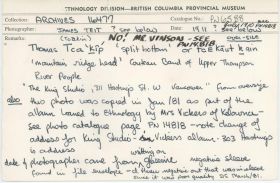 ETHNOLOGY DIVISION—BRITISH COLUMBIA PROVINCIAL MUSEUM
Collection: ARCHIVES
Catalogue No.: PN6588
Photographer: JAMES TEIT ? see below
Date: 1911 - see below
Remarks: NO! MR. VINSON - SEE PN 14818
Thomas Tca'kip "split bottom" or
"mountain ridge head" Couteau Band of Upper Thompson
River People
ex King Studio, 311 Hastings St. W Vancouver from average
also this photo was copied in Jan 181 as part of the
album loaned to Ethnology by Mrs Vickers of Kelowna -
see photo catalogue page PN 14818 - note change of
address for King Studio on Vickers album. 303 Hastings
is address
date & photographer came from writing on negative sleeve
found in file envelope - I threw neg out that was in sleeve
since it was poor quality 25 March/81.